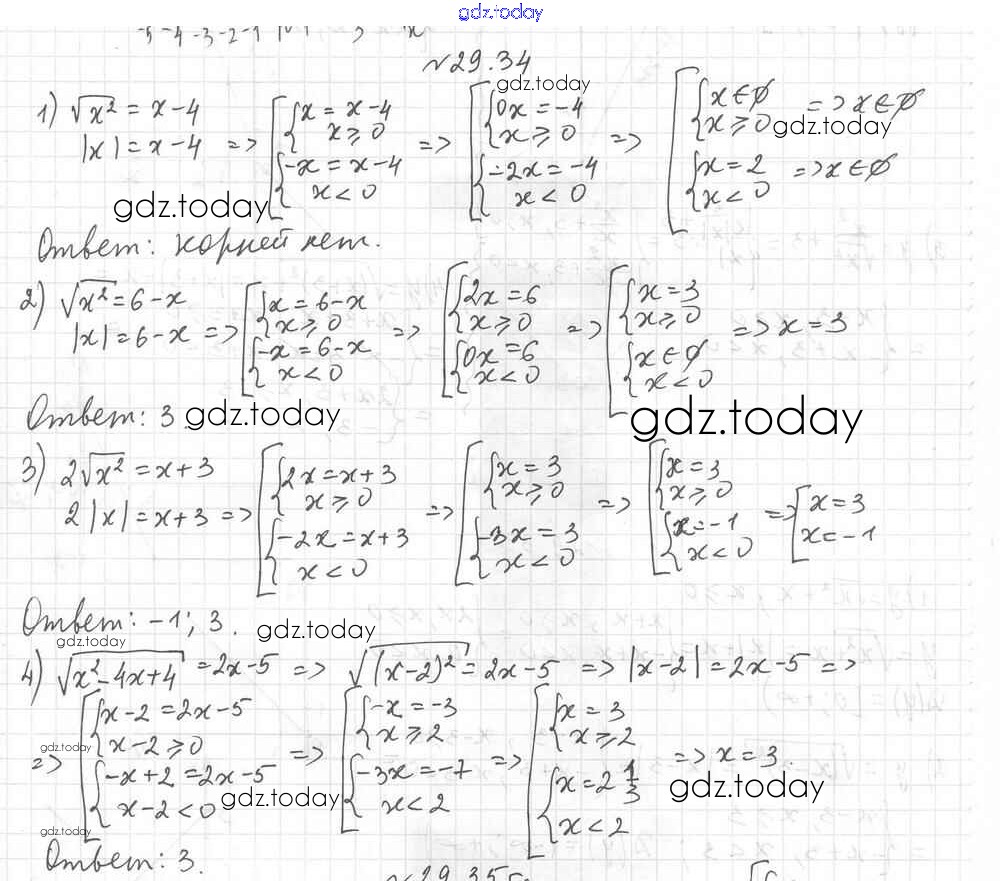 gdz.today
-5 -4 -3 -2 -1
№29.34
gdz.today
1) √x² = x-4
|x| = x-4 => [ { x = x-4 ; x ≥ 0 ; { -x = x-4 ; x < 0 => [ { 0x = -4 ; x ≥ 0 ; { -2x = -4 ; x < 0 => [ { x ∈ ∅ ; x ≥ 0 => x ∈ ∅ ; { x = 2 ; x < 0 => x ∈ ∅
gdz.today
gdz.today
Ответ: корней нет.
2) √x² = 6-x
|x| = 6-x => [ { x = 6-x ; x ≥ 0 ; { -x = 6-x ; x < 0 => [ { 2x = 6 ; x ≥ 0 ; { 0x = 6 ; x < 0 => [ { x = 3 ; x ≥ 0 ; { x ∈ ∅ ; x < 0 => x = 3
Ответ: 3
gdz.today
gdz.today
3) 2√x² = x+3
2|x| = x+3 => [ { 2x = x+3 ; x ≥ 0 ; { -2x = x+3 ; x < 0 => [ { x = 3 ; x ≥ 0 ; { -3x = 3 ; x < 0 => [ { x = 3 ; x ≥ 0 ; { x = -1 ; x < 0 => [ x = 3 ; x = -1
Ответ: -1; 3.
gdz.today
gdz.today
4) √x²-4x+4 = 2x-5 => √(x-2)² = 2x-5 => |x-2| = 2x-5 =>
=> [ { x-2 = 2x-5 ; x-2 ≥ 0 ; { -x+2 = 2x-5 ; x-2 < 0 => [ { -x = -3 ; x ≥ 2 ; { -3x = -7 ; x < 2 => [ { x = 3 ; x ≥ 2 ; { x = 2 1/3 ; x < 2 => x = 3
gdz.today
gdz.today
gdz.today
gdz.today
Ответ: 3.
№29.35